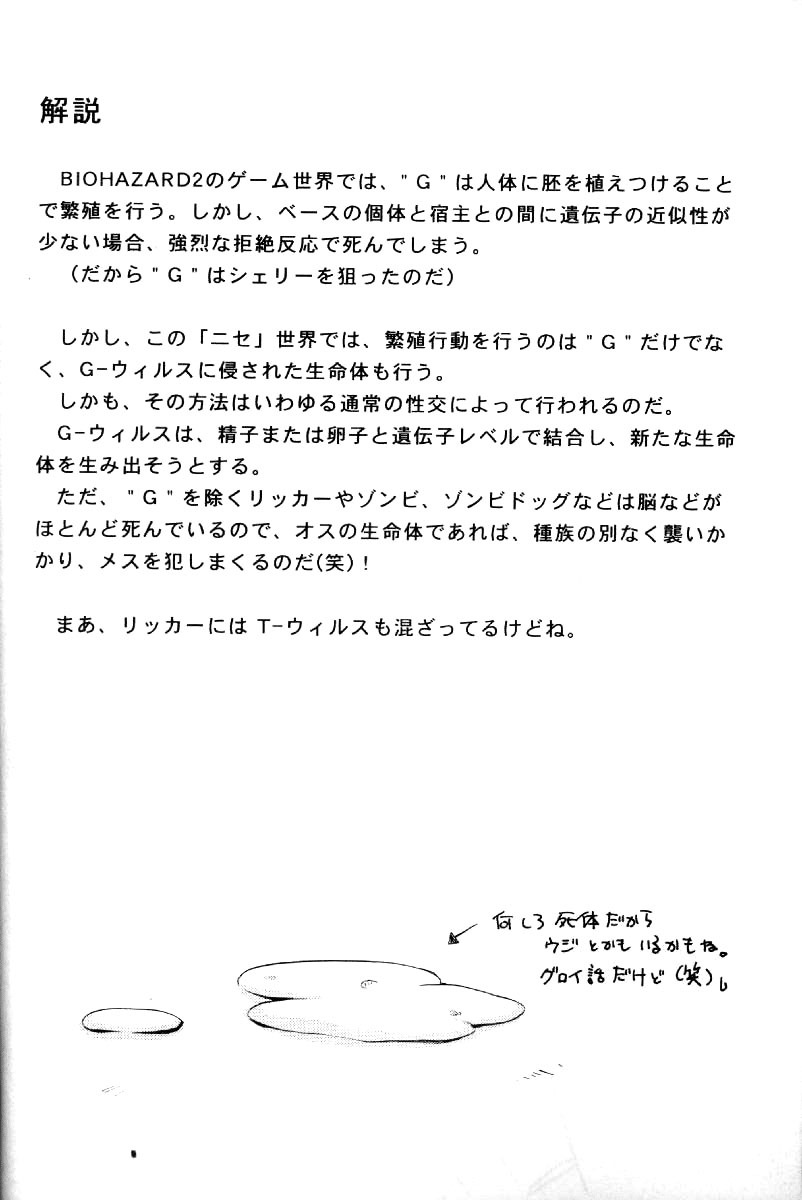 解説
BIOHAZARD2のゲーム世界では、"G"は人体に胚を植えつけること
で繁殖を行う。しかし、ベースの個体と宿主との間に遺伝子の近似性が
少ない場合、強烈な拒絶反応で死んでしまう。
（だから"G"はシェリーを狙ったのだ）
しかし、この「ニセ」世界では、繁殖行動を行うのは"G"だけでな
く、G-ウィルスに侵された生命体も行う。
しかも、その方法はいわゆる通常の性交によって行われるのだ。
G-ウィルスは、精子または卵子と遺伝子レベルで結合し、新たな生命
体を生み出そうとする。
ただ、"G"を除くリッカーやゾンビ、ゾンビドッグなどは脳などが
ほとんど死んでいるので、オスの生命体であれば、種族の別なく襲いか
かり、メスを犯しまくるのだ(笑)！
まあ、リッカーにはT-ウィルスも混ざってるけどね。
何しろ死体だから
ウジとかもいるかもね。
グロイ話だけど（笑）